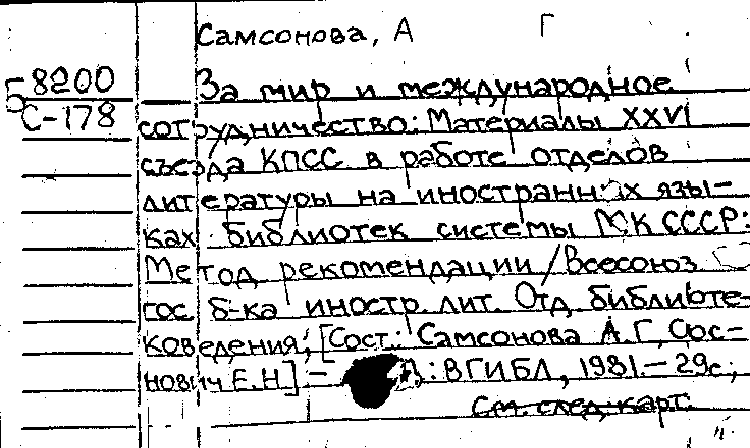 Самсонова, А Г
Б 8200
С-178
За мир и международное
сотрудничество: Материалы XXVI
съезда КПСС в работе отделов
литературы на иностранных язы-
ках библиотек системы МК СССР:
Метод рекомендации/Всесоюз
гос б-ка иностр. лит. Отд библиоте-
коведения; [Сост.: Самсонова А.Г, Сос-
нович Е.Н] - : ВГИБЛ, 1981.- 29с;
См. след. карт.